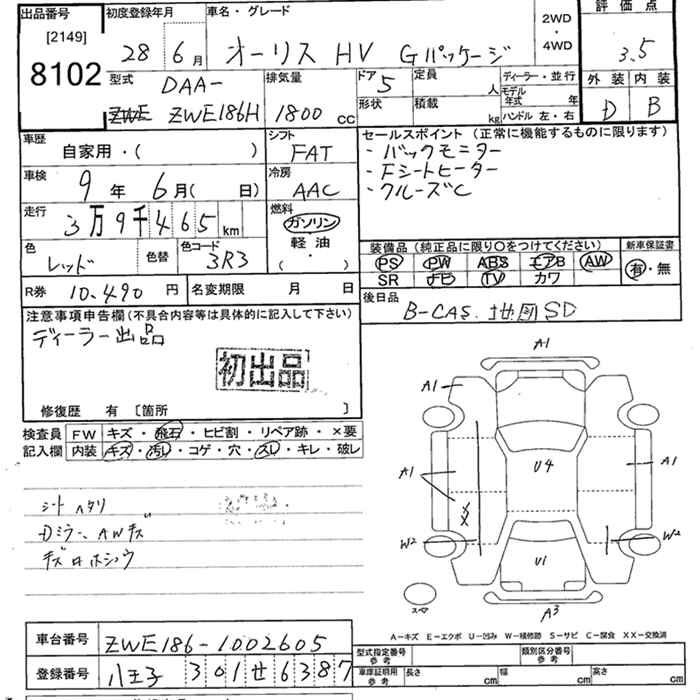 出品番号
[2149]
8102
初度登録年月
28 6月
車名・グレード
オーリス HV Gパッケージ
2WD
・
4WD
評価点
3.5
型式
DAA-
ZWE ZWE186H
排気量
1800 cc
ドア 5
定員 人
形状
積載 kg
ディーラー・並行
モデル年式 年
ハンドル 左・右
外装 内装
D B
車歴
自家用・( )
シフト
FAT
セールスポイント (正常に機能するものに限ります)
・バックモニター
・Fシートヒーター
・クルーズC
車検
9年 6月( 日)
冷房
AAC
走行
3万9千465 km
燃料
ガソリン
軽油
( ・ )
色
レッド
色替
色コード
3R3
装備品 (純正品に限り○をつけてください)
PS PW ABS エアB AW
SR ナビ TV カワ
新車保証書
有・無
R券 10.490 円
名変期限 月 日
後日品
B-CAS. 地図SD
注意事項申告欄 (不具合内容等は具体的に記入して下さい)
ディーラー出品
初出品
修復歴 有 [箇所 ]
検査員 FW キズ・飛石・ヒビ割・リペア跡・×要
記入欄 内装 キズ・汚レ・コゲ・穴・スレ・キレ・破レ
シートヘタリ
Dミラー、AWキズ
キズロホシュウ
A1
A1
A1
A1
U4
XX
W2
W2
U1
A3
スマ
A-キズ E-エクボ U-凹み W-補修跡 S-サビ C-腐食 XX-交換済
車台番号
ZWE186-1002605
登録番号
八王子 301 せ 6387
型式指定番号
参考
類別区分番号
参考
車庫証明用
参考
長さ cm
幅 cm
高さ cm